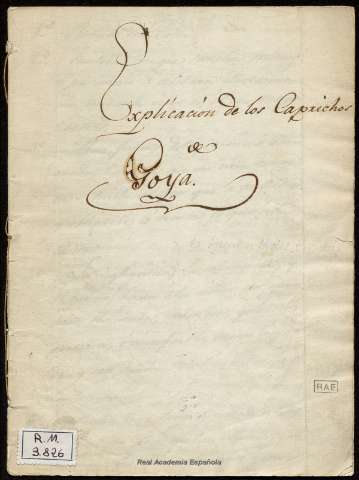 Explicación de los Caprichos
de
Goya.
RAE
R.M.
3.826
Real Academia Española